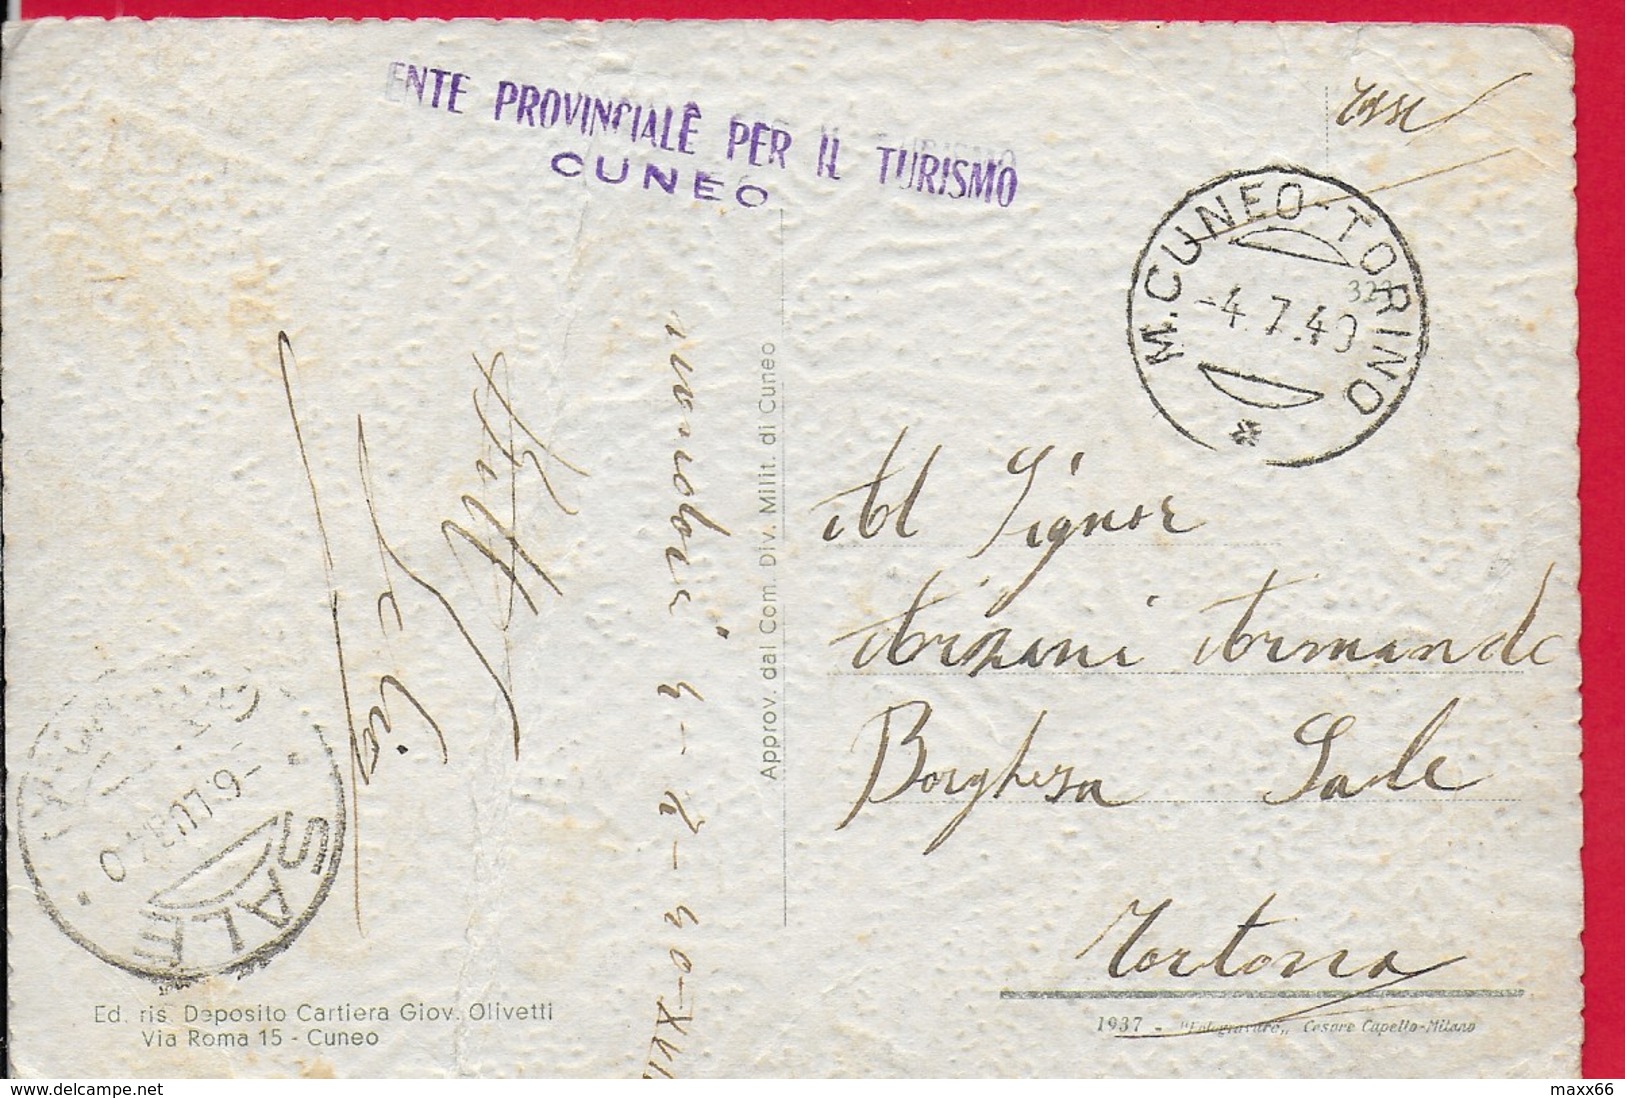 ENTE PROVINCIALE PER IL TURISMO
CUNEO
M. CUNEO-TORINO
-4.7.40
Al Signor
Arzani Armando
Borghesa Sale
Tortona
4-7-40-XVIII
Approv. dal Com. Div. Milit. di Cuneo
SALE
Ed. ris. Deposito Cartiera Giov. Olivetti
Via Roma 15 - Cuneo
1937 - "Fotogravure" Cesare Capello-Milano
maxx66